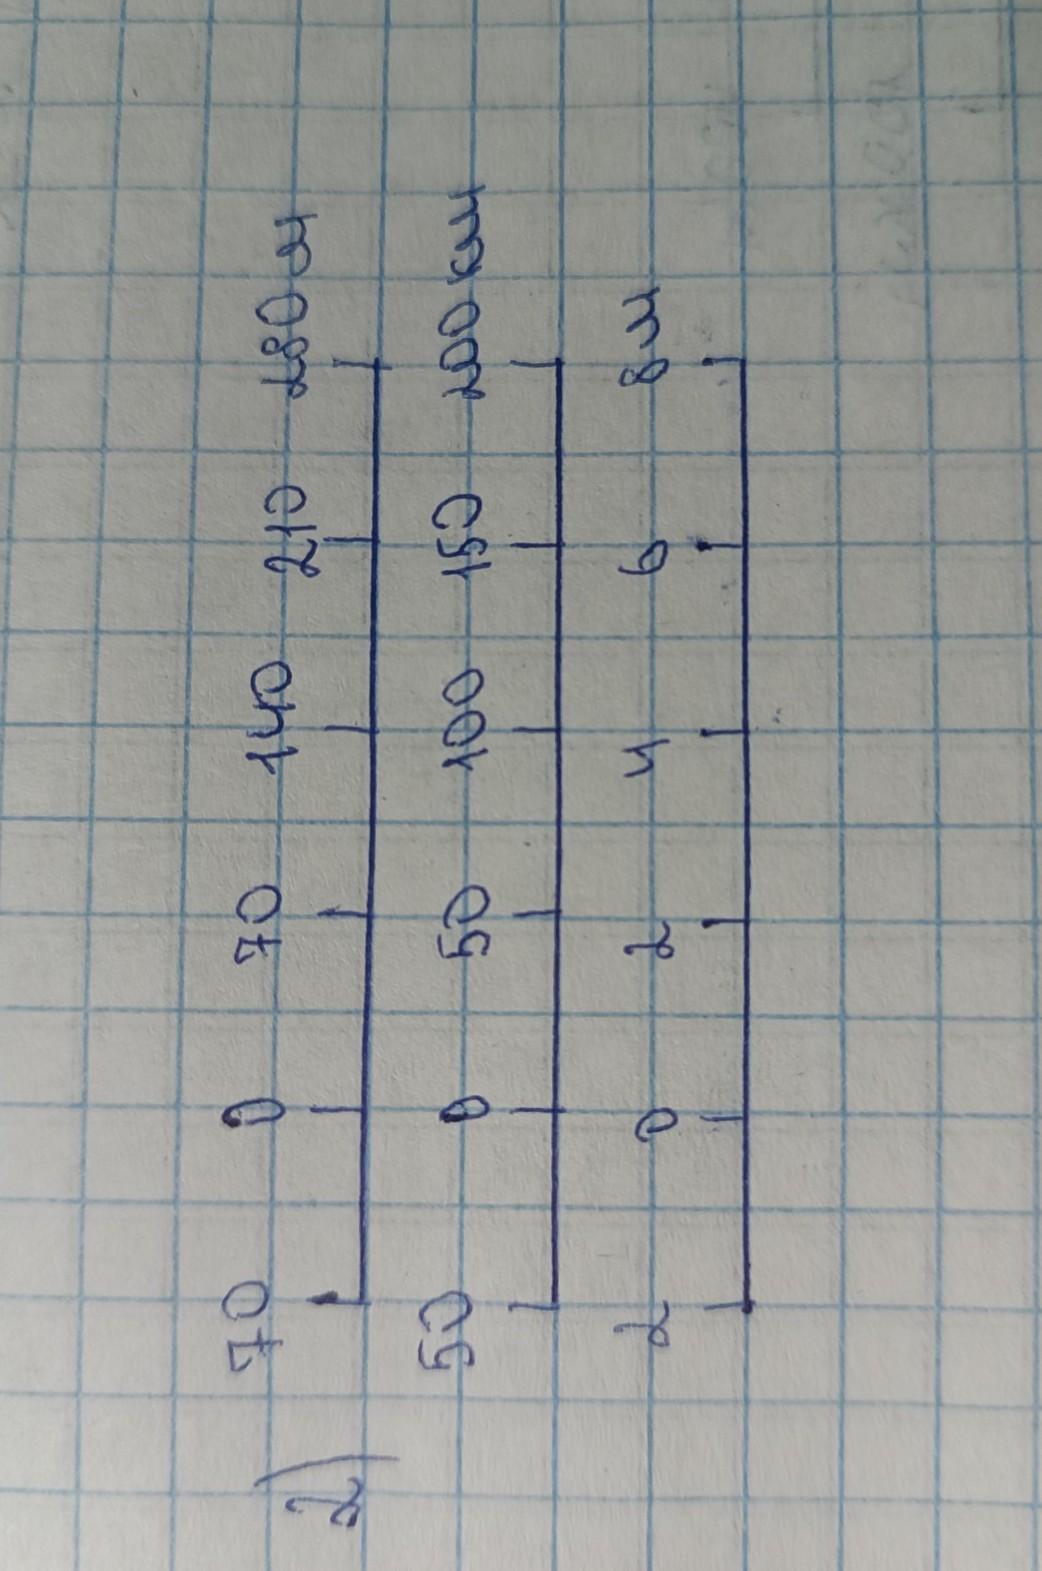 2)
70 0 70 140 210 280 м
50 0 50 100 150 200 км
2 0 2 4 6 8 м